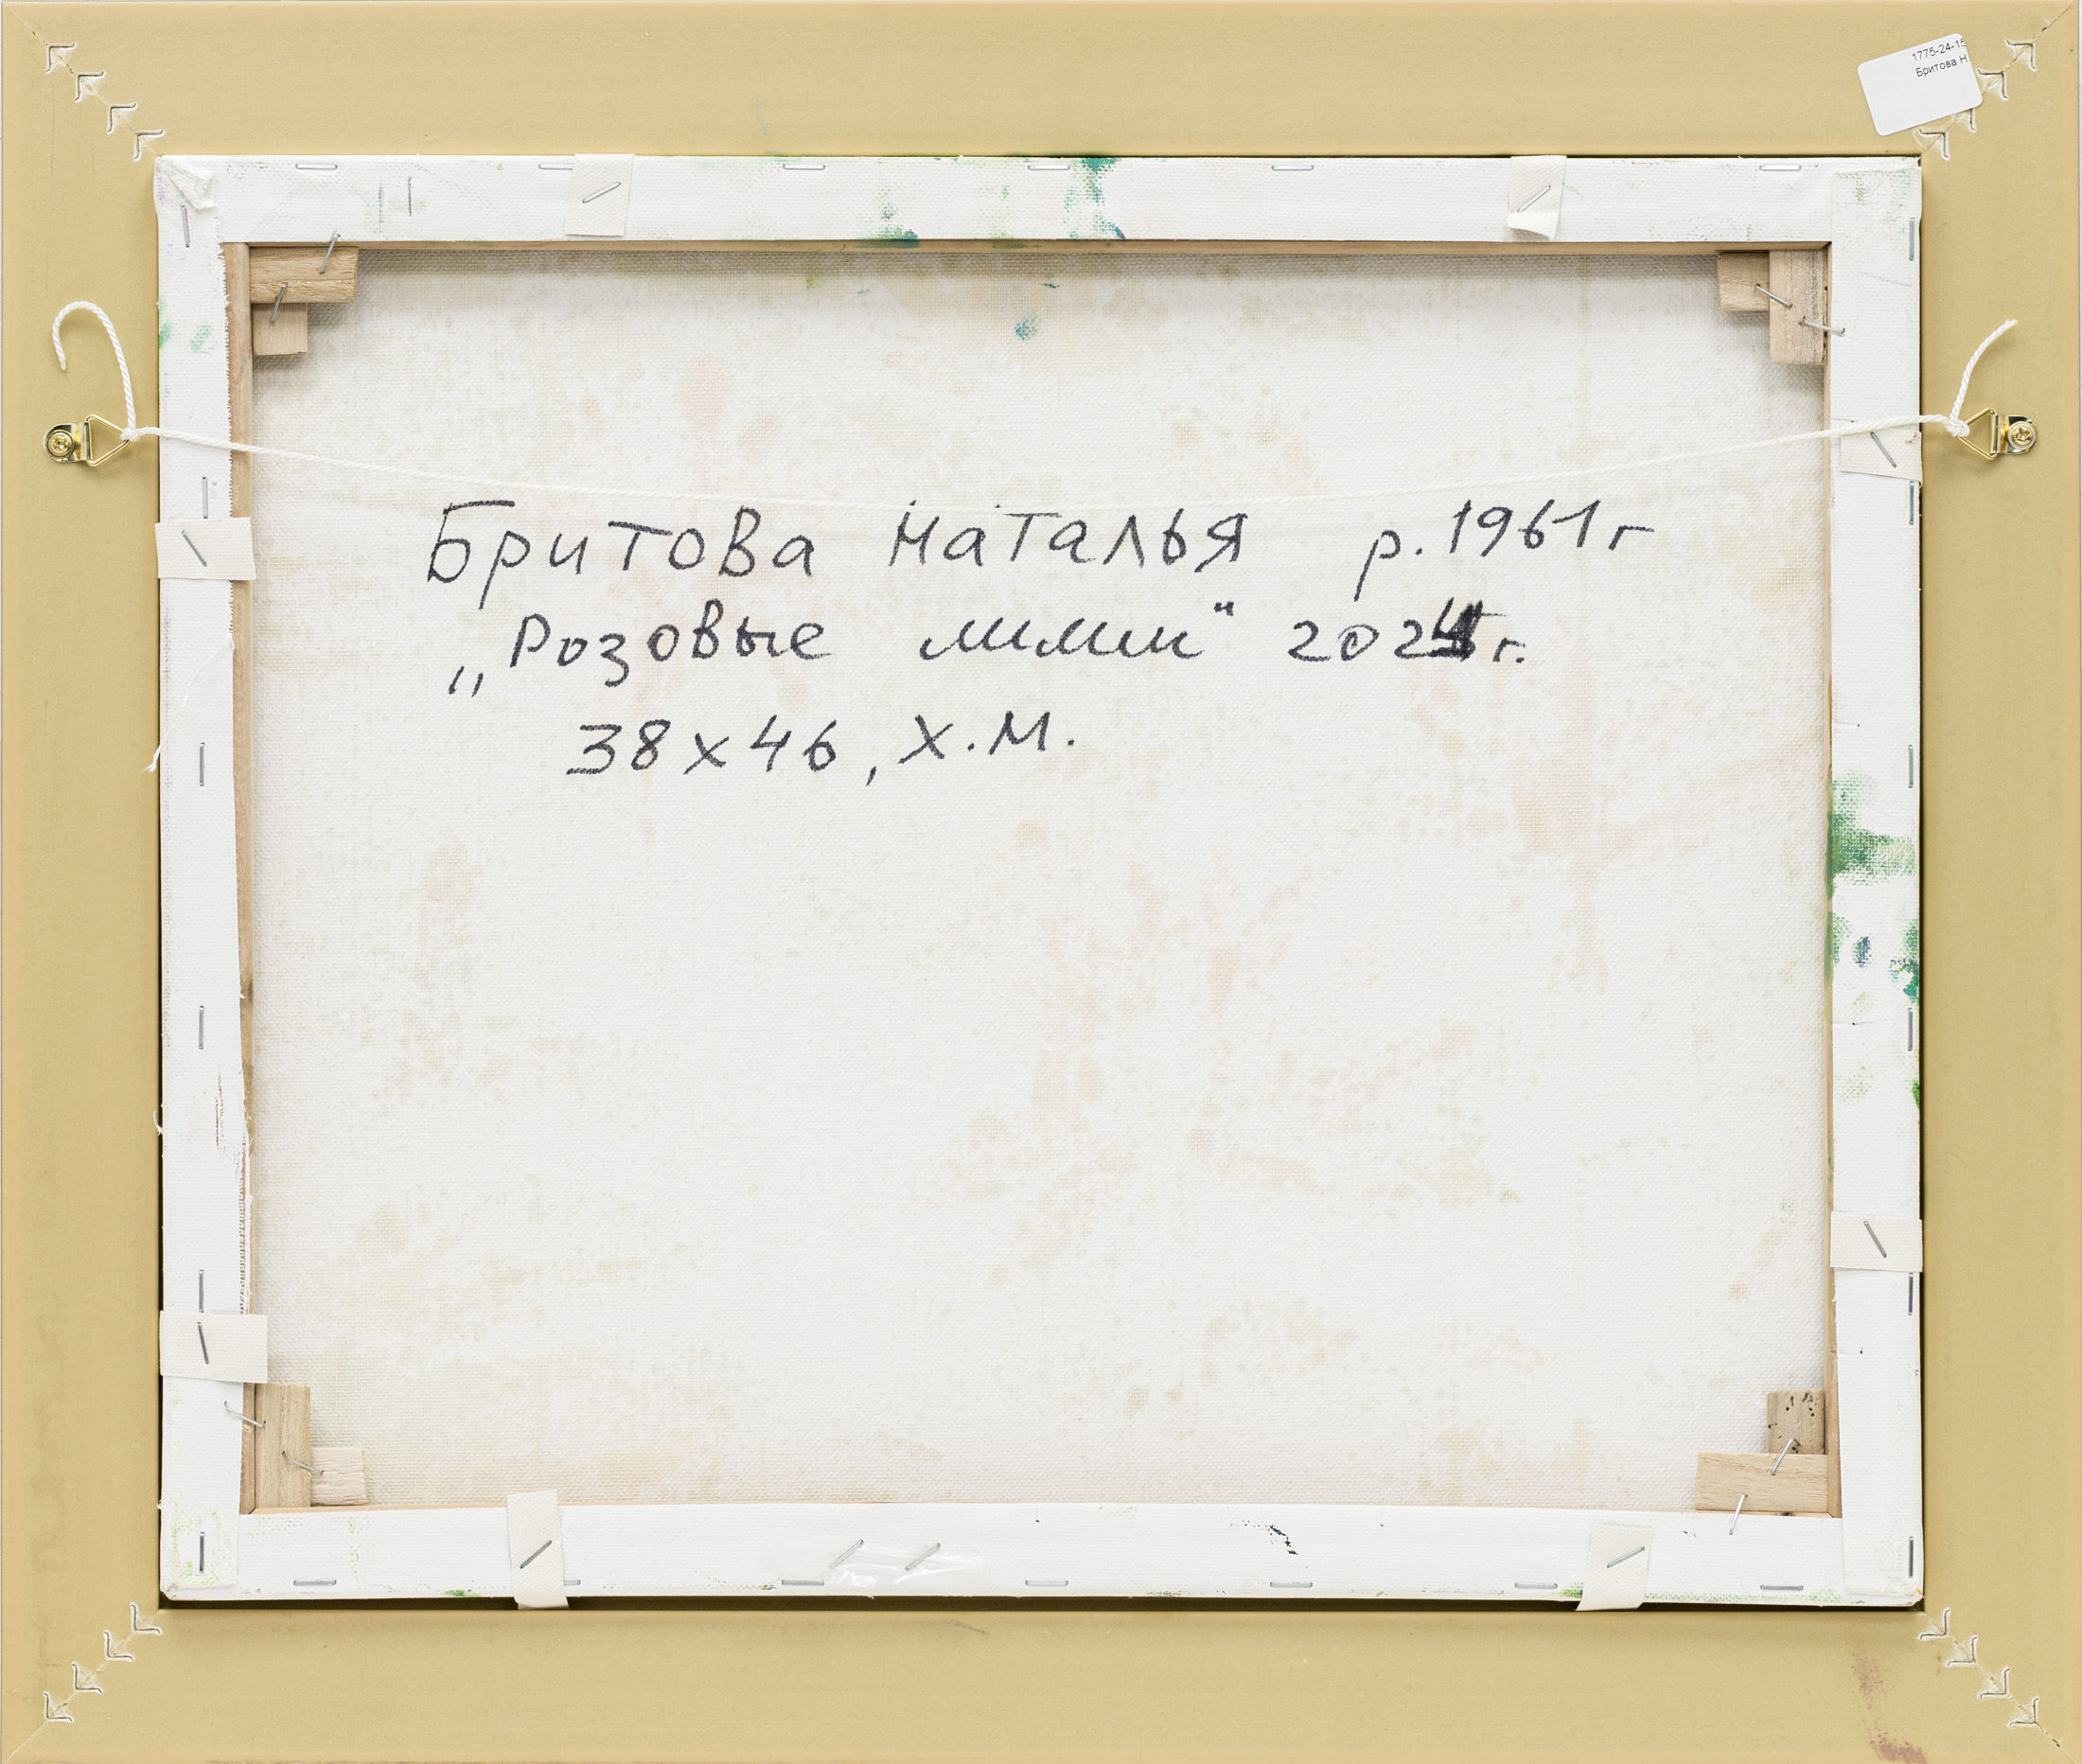 1775-24-15
Бритова Н
Бритова Наталья р. 1961г
„Розовые лилии" 2024г.
38х46, х.м.